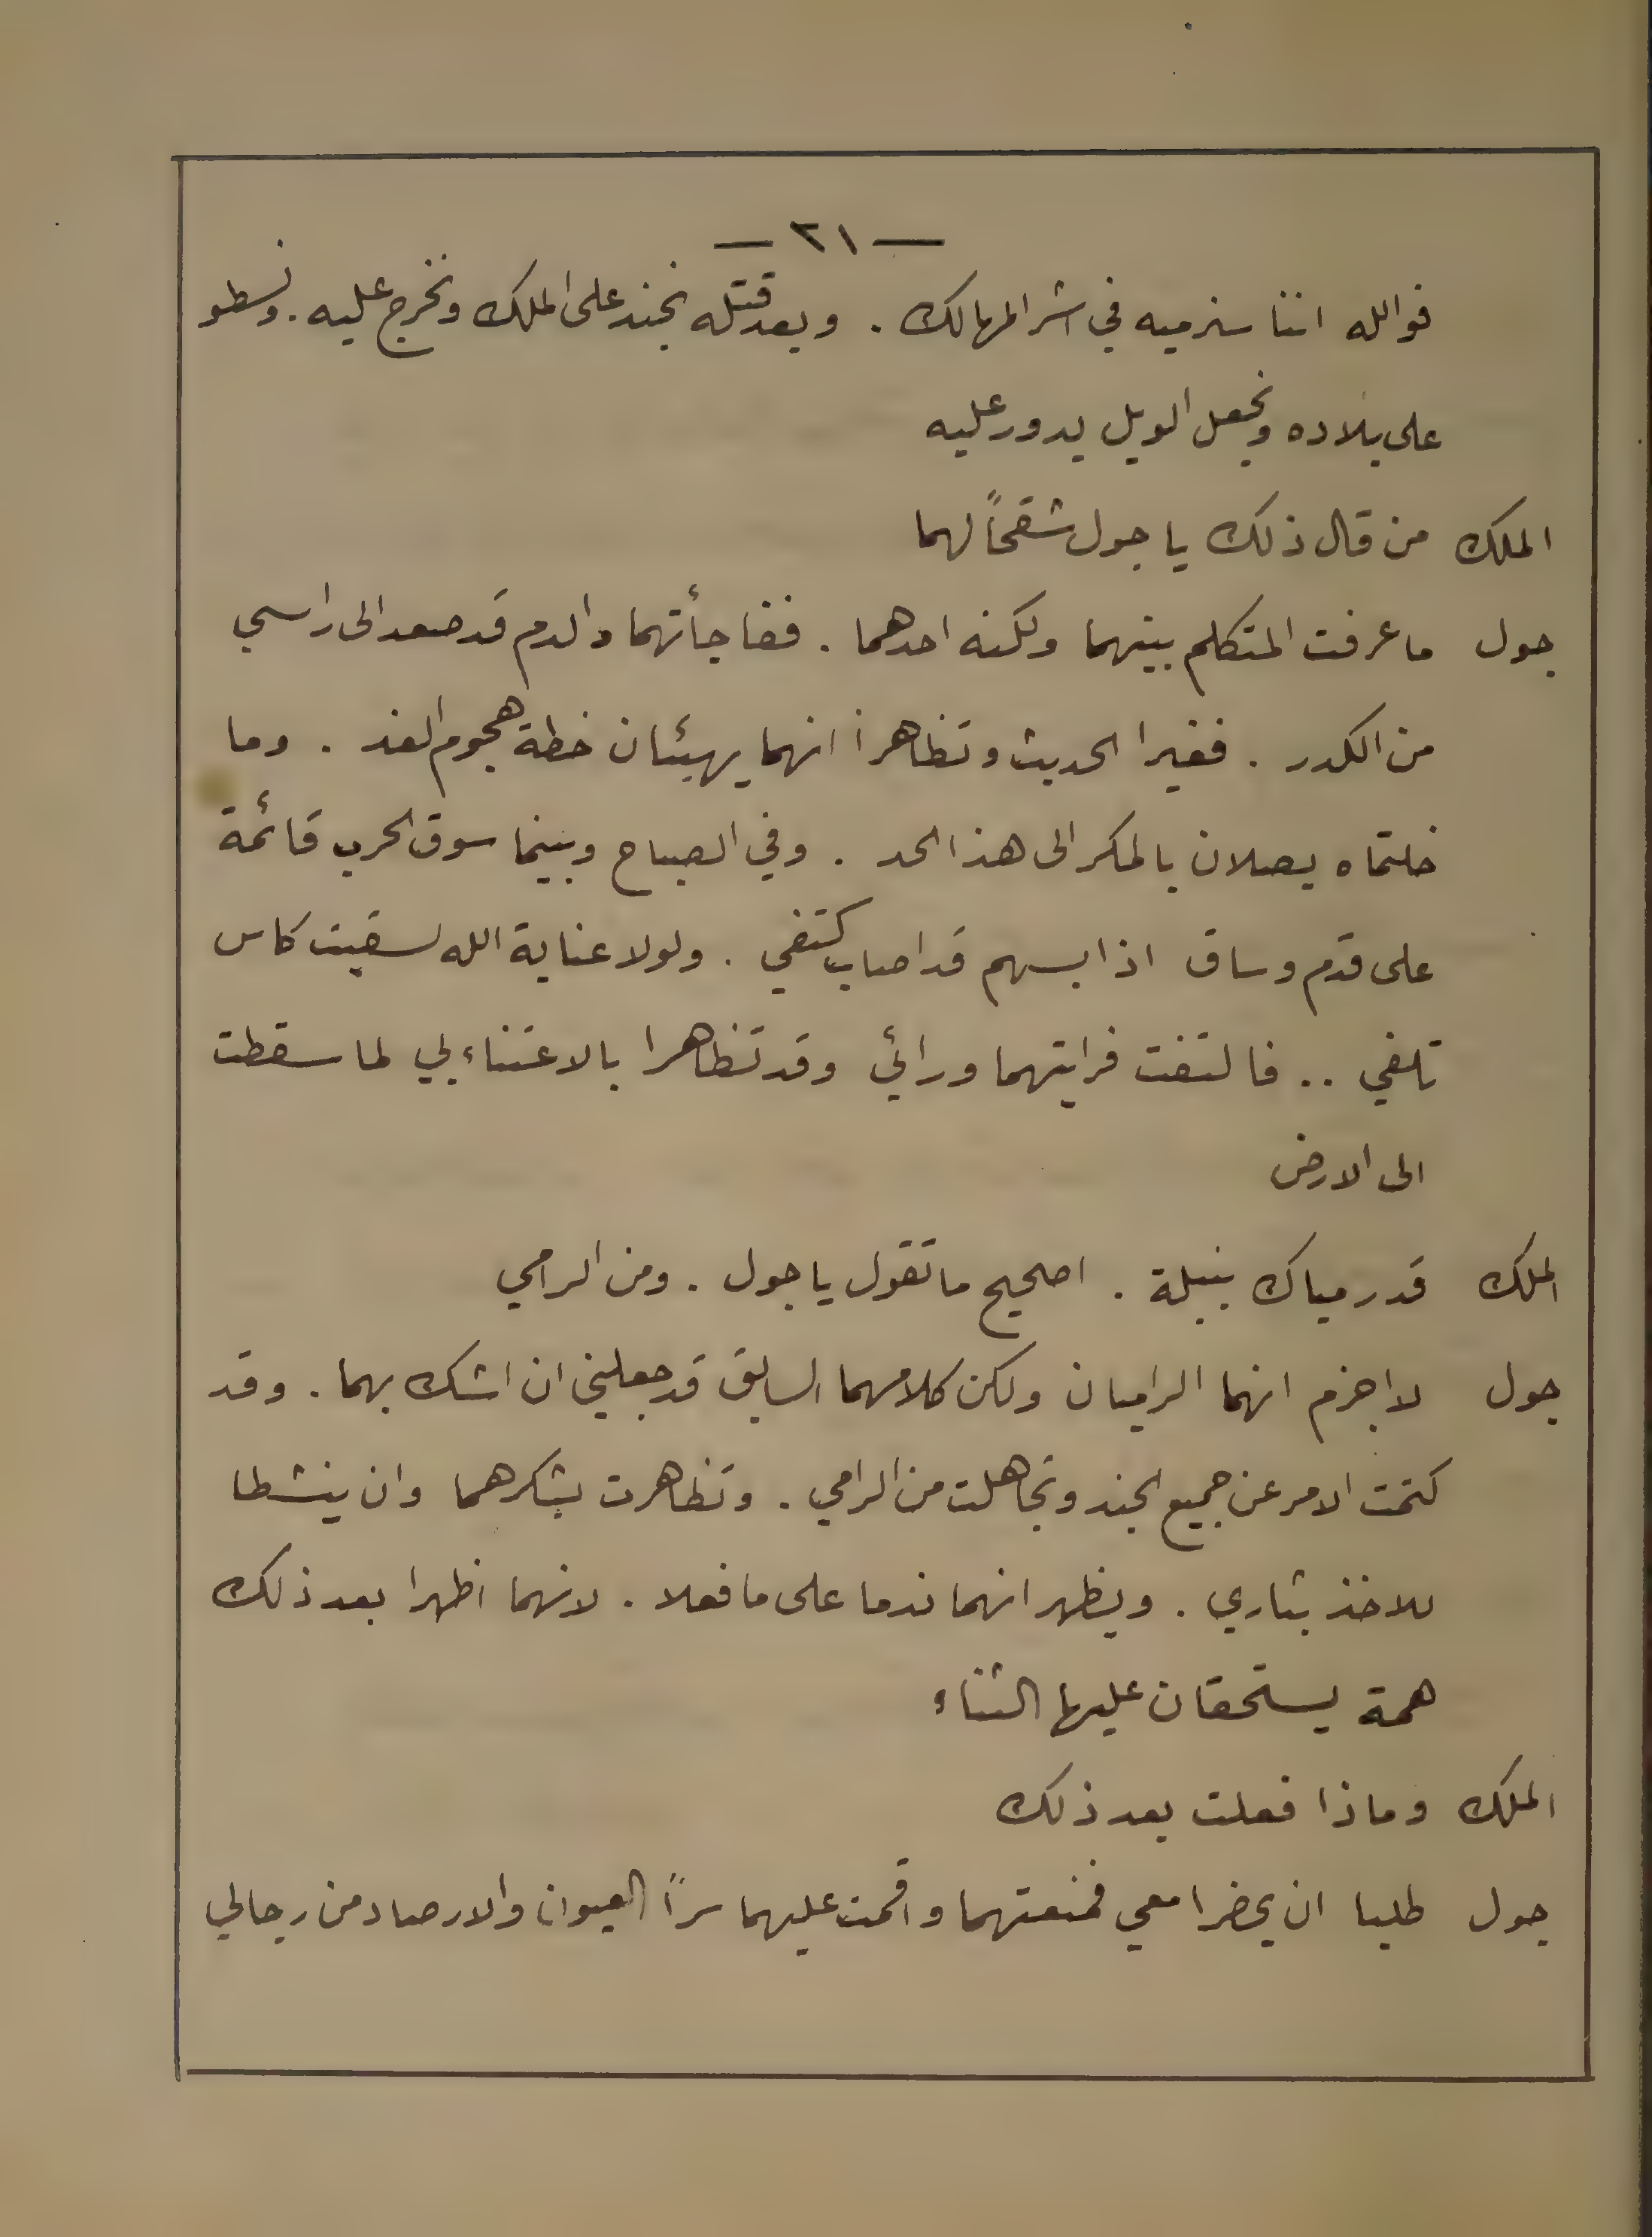 — ٣١ —
فوالله اننا سنرميه في اشر المهالك . وبعد قتله نجند على الملك ونخرج عليه . ونسطو
على بلاده ونجعل الويل يدور عليه
الملك من قال ذلك يا جول شقحاً لهما
جول ما عرفت المتكلم بينهما ولكنه احدهما . ففاجأتهما والدم قد صعد الى راسي
من الكدر . فغيرا الحديث وتظاهرا انهما يهيئان خطة هجوم الغد . وما
خلتماه يصلان بالمكر الى هذا الحد . وفي الصباح وبينما سوق الحرب قائمة
على قدم وساق اذا بسهم قد اصاب كتفي . ولولا عناية الله لسقيت كاس
تلفي .. فالتفت فرايتهما ورائي وقد تظاهرا بالاعتناء بي لما سقطت
الى الارض
الملك قد رمياك بنبلة . اصحيح ما تقول يا جول . ومن الرامي
جول لا اجزم انهما الراميان ولكن كلامهما السابق قد جعلني ان اشك بهما . وقد
كتمت الامر عن جميع الجند وتجاهلت من الرامي . وتظاهرت بشكرهما وان ينشطا
للاخذ بثاري . ويظهر انهما ندما على ما فعلا . لانهما اظهرا بعد ذلك
همة يستحقان عليها الثناء
الملك وماذا فعلت بعد ذلك
جول طلبا ان يحضرا معي فمنعتهما واقمت عليهما سراً العيون والارصاد من رجالي